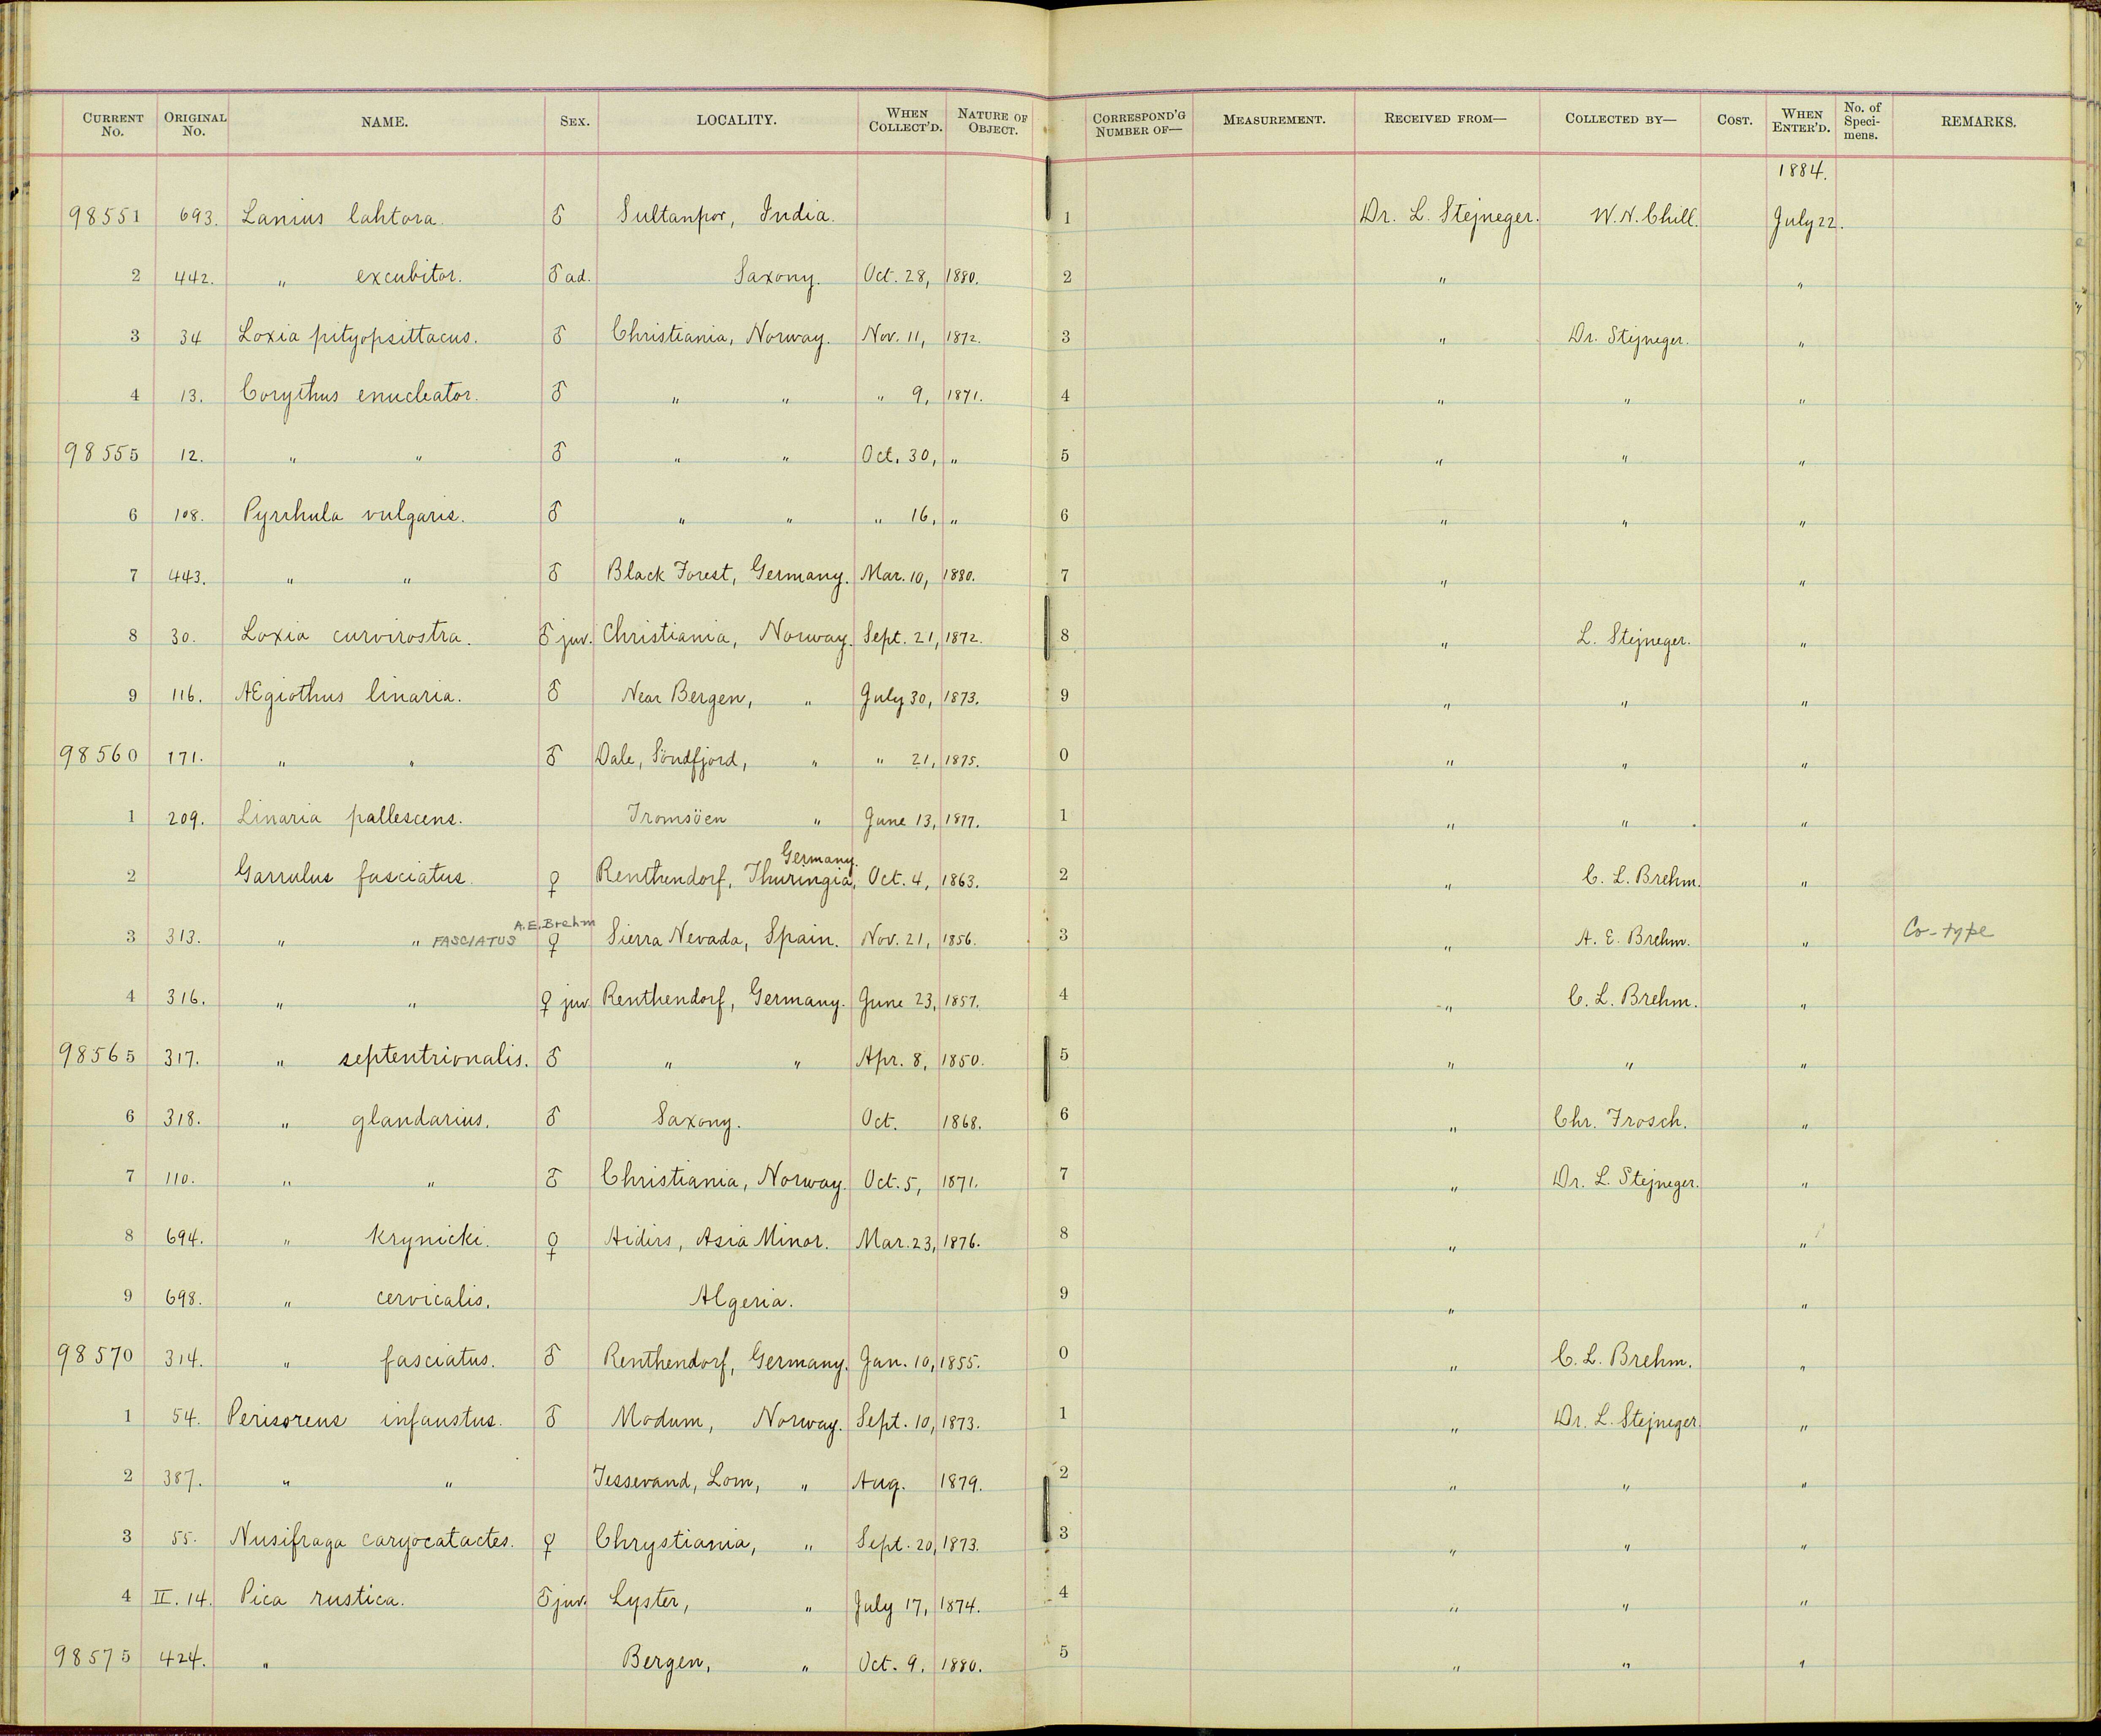 CURRENT No. ORIGINAL No. NAME. SEX. LOCALITY. WHEN COLLECT'D. NATURE OF OBJECT. CORRESPOND'G NUMBER OF— MEASUREMENT. RECEIVED FROM— COLLECTED BY— COST. WHEN ENTER'D. No. of Speci-mens. REMARKS.
1884.
98551 693. Lanius lahtora. ♂ Sultanpor, India. 1 Dr. L. Stejneger. W. N. Chill. July 22.
2 442. " excubitor. ♂ ad. Saxony. Oct. 28, 1880. 2 " "
3 34 Loxia pityopsittacus. ♂ Christiania, Norway. Nov. 11, 1872. 3 " Dr. Stejneger. "
4 13. Corythus enucleator. ♂ " " " 9, 1871. 4 " " "
98555 12. " " ♂ " " Oct. 30, " 5 " " "
6 108. Pyrrhula vulgaris. ♂ " " " 16, " 6 " " "
7 443. " " ♂ Black Forest, Germany. Mar. 10, 1880. 7 " "
8 30. Loxia curvirostra. ♂ juv. Christiania, Norway. Sept. 21, 1872. 8 " L. Stejneger. "
9 116. Ægiothus linaria. ♂ Near Bergen, " July 30, 1873. 9 " " "
98560 171. " " ♂ Dale, Söndfjord, " " 21, 1875. 0 " " "
1 209. Linaria pallescens. Tromsöen " June 13, 1877. 1 " " "
Germany.
2 Garrulus fasciatus. ♀ Renthendorf, Thuringia, Oct. 4, 1863. 2 " C. L. Brehm. "
A.E. Brehm
3 313. " " FASCIATUS ♀ Sierra Nevada, Spain. Nov. 21, 1856. 3 " A. E. Brehm. " Co-type
4 316. " " ♀ juv. Renthendorf, Germany. June 23, 1857. 4 " C. L. Brehm. "
98565 317. " septentrionalis. ♂ " " Apr. 8, 1850. 5 " " "
6 318. " glandarius. ♂ Saxony. Oct. 1868. 6 " Chr. Frosch. "
7 110. " " ♂ Christiania, Norway. Oct. 5, 1871. 7 " Dr. L. Stejneger. "
8 694. " Krynicki. ♀ Aidirs, Asia Minor. Mar. 23, 1876. 8 " "
9 698. " cervicalis. Algeria. 9 " "
98570 314. " fasciatus. ♂ Renthendorf, Germany. Jan. 10, 1855. 0 " C. L. Brehm. "
1 54. Perisoreus infaustus. ♂ Modum, Norway. Sept. 10, 1873. 1 " Dr. L. Stejneger. "
2 387. " " Tessevand, Lom, " Aug. 1879. 2 " " "
3 55. Nusifraga caryocatactes. ♀ Chrystiania, " Sept. 20, 1873. 3 " " "
4 II. 14. Pica rustica. ♂ juv. Lyster, " July 17, 1874. 4 " " "
98575 424. " Bergen, " Oct. 9, 1880. 5 " " "